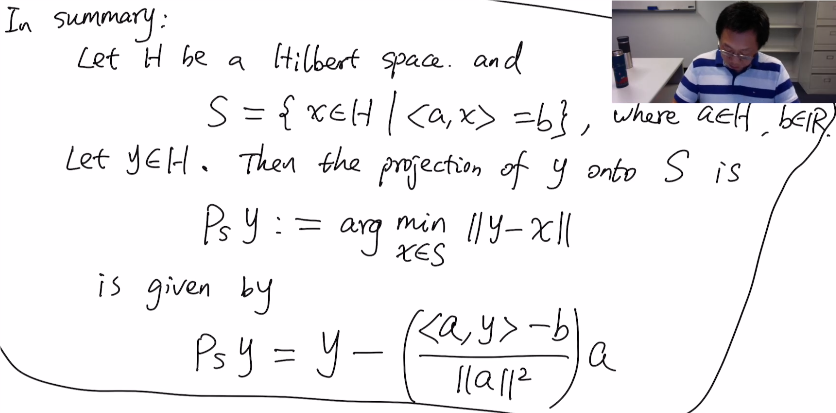 In summary:
Let H be a Hilbert space. and
S = { x∈H | <a,x> =b}, where a∈H, b∈ℝ
Let y∈H. Then the projection of y onto S is
P_S y := arg min_{x∈S} ||y-x||
is given by
P_S y = y - ( (<a,y> -b) / ||a||² ) a